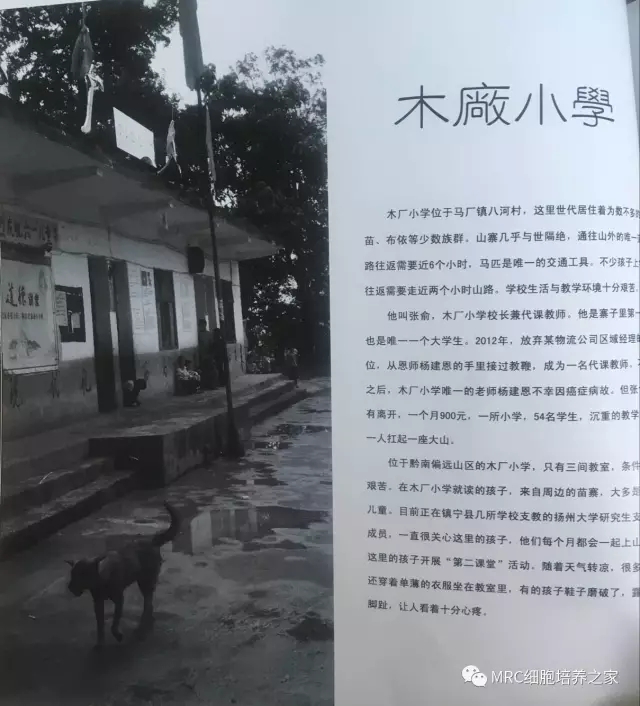 木廠小學
木厂小学位于马厂镇八河村，这里世代居住着为数不多的
苗、布依等少数族群。山寨几乎与世隔绝，通往山外的唯一
路往返需要近6个小时，马匹是唯一的交通工具。不少孩子上
往返需要走近两个小时山路。学校生活与教学环境十分艰苦。
他叫张俞，木厂小学校长兼代课教师，他是寨子里第一
也是唯一一个大学生。2012年，放弃某物流公司区域经理的
位，从恩师杨建恩的手里接过教鞭，成为一名代课教师。
之后，木厂小学唯一的老师杨建恩不幸因癌症病故。但张
有离开，一个月900元，一所小学，54名学生，沉重的教学
一人扛起一座大山。
位于黔南偏远山区的木厂小学，只有三间教室，条件
艰苦。在木厂小学就读的孩子，来自周边的苗寨，大多是
儿童。目前正在镇宁县几所学校支教的扬州大学研究生支
成员，一直很关心这里的孩子，他们每个月都会一起上山
这里的孩子开展“第二课堂”活动。随着天气转凉，很多
还穿着单薄的衣服坐在教室里，有的孩子鞋子磨破了，露
脚趾，让人看着十分心疼。
MRC细胞培养之家